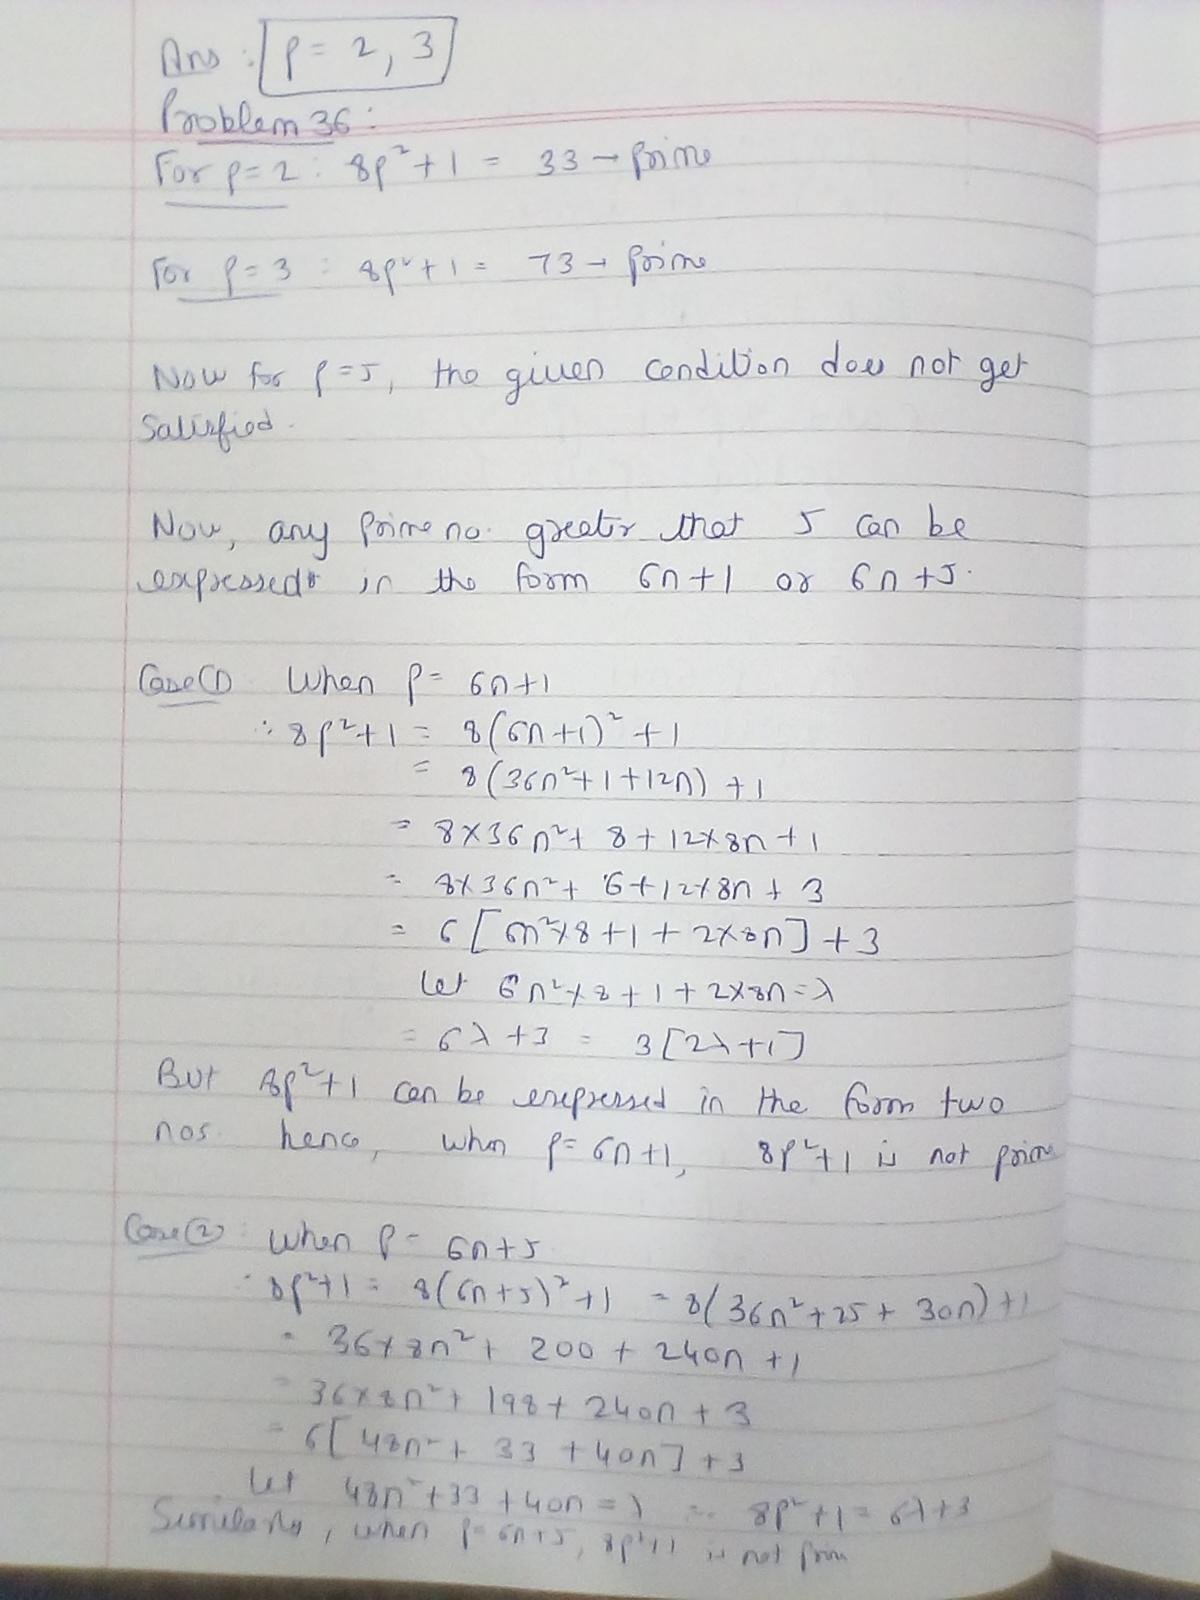 Ans : p = 2, 3
Problem 36 :
For p = 2 : 8p² + 1 = 33 → prime
For p = 3 : 8p² + 1 = 73 → prime
Now for p = 5, the given condition does not get
satisfied.
Now, any prime no. greater that 5 can be
expressed in the form 6n + 1 or 6n + 5.
Case (1) When p = 6n + 1
∴ 8p² + 1 = 8(6n + 1)² + 1
= 8(36n² + 1 + 12n) + 1
= 8 × 36n² + 8 + 12 × 8n + 1
= 8 × 36n² + 6 + 12 × 8n + 3
= 6[6n² × 8 + 1 + 2 × 8n] + 3
Let 6n² × 8 + 1 + 2 × 8n = λ
= 6λ + 3 = 3[2λ + 1]
But 8p² + 1 can be expressed in the form two
nos. hence, when p = 6n + 1, 8p² + 1 is not prime
Case (2) : When p = 6n + 5
∴ 8p² + 1 = 8(6n + 5)² + 1 = 8(36n² + 25 + 30n) + 1
= 36 × 8n² + 200 + 240n + 1
= 36 × 8n² + 198 + 240n + 3
= 6[48n² + 33 + 40n] + 3
Let 48n² + 33 + 40n = λ ∴ 8p² + 1 = 6λ + 3
Similarly, when p = 6n + 5, 8p² + 1 is not prim